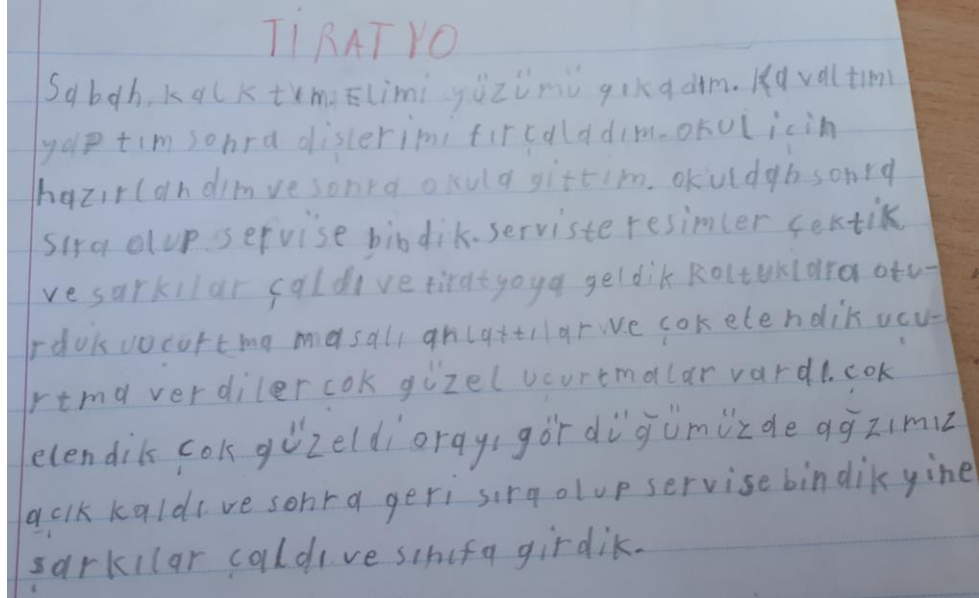 TİRATYO
Sabah, kalktım. Elimi yüzümü yıkadım. Kavaltımı
yaptım sonra dişlerimi fırçaladım. okul için
hazırlandım ve sonra okula gittim. okuldan sonra
sıra olup servise bindik. serviste resimler çektik
ve sarkılar çaldı ve tiratyoya geldik Koltuklara otu-
rduk uucurtma masalı anlattılar ve çok elendik ucu-
rtma verdiler çok güzel ucurtmalar vardı. çok
elendik çok güzeldi orayı gördüğümüzde ağzımız
açık kaldı ve sonra geri sıra olup servise bindik yine
şarkılar çaldı ve sınıfa girdik.